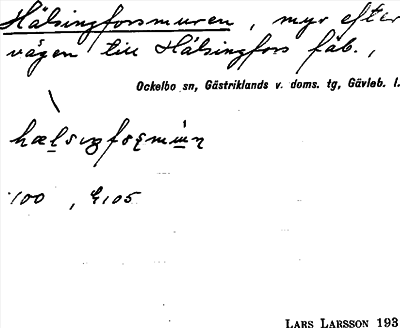 Hälsingforsmuren, myr efter
vägen till Hälsingfors fäb.,
Ockelbo sn, Gästriklands v. doms. tg, Gävleb. l.
100, G105
LARS LARSSON 193